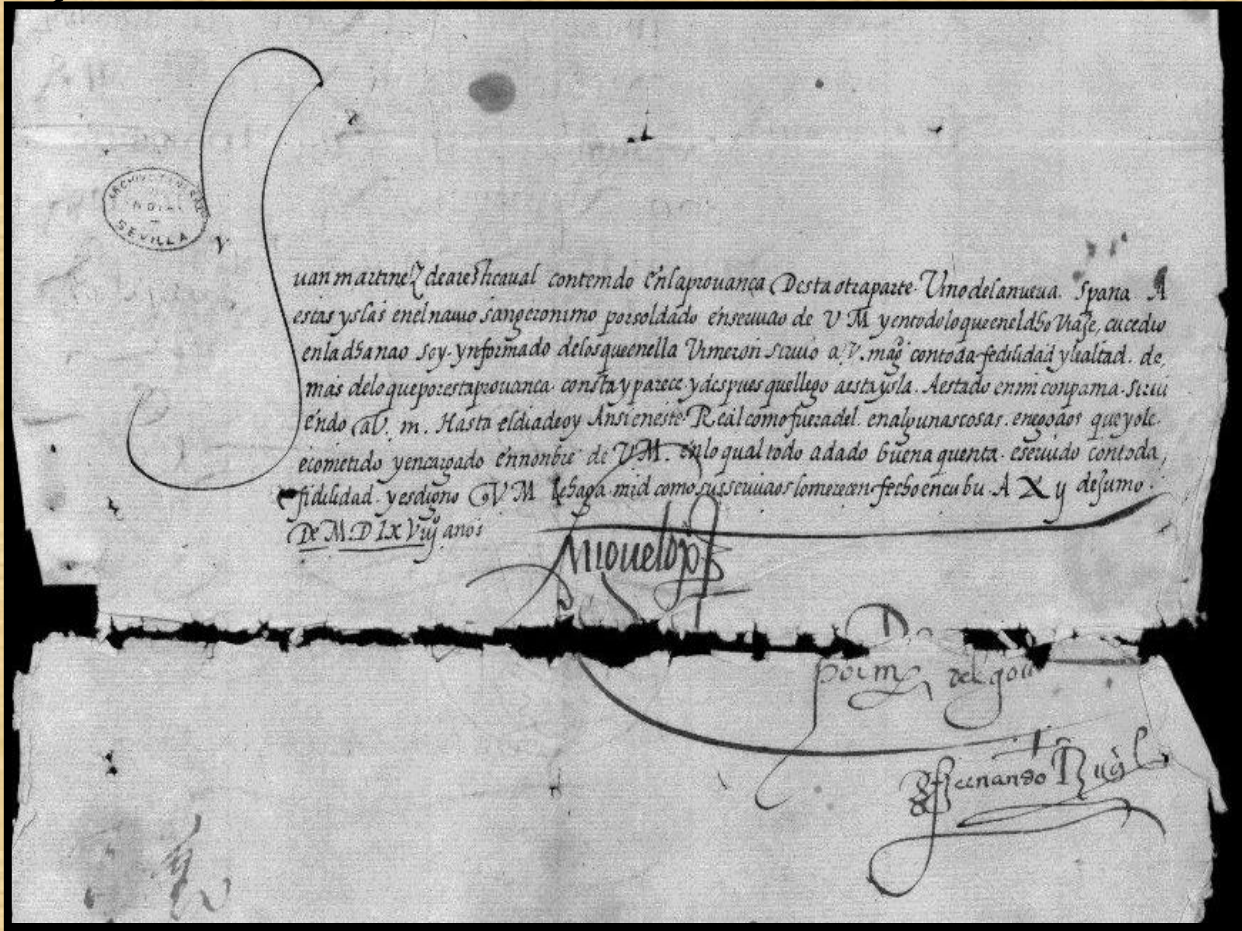 ARCHIVO GENERAL
INDIAS
SEVILLA
Juan martinez de areshcaual contenido enla prouança Desta otra parte. Vino dela nueua. Spana A
estas yslas enel nauio san geronimo por soldado en seruicio de V M y en todo lo que enel dho viaje, sucedio
enla dha nao soy. ynformado delos que en ella Vinieron siruio a V. magd con toda fedilidad y lealtad. de
mas delo que por esta prouança. consta y parece y despues que llego a esta ysla. A estado en mi conpania. Sirui
endo a V. m. Hasta el dia de oy Ansi en este Real como fuera del. en algunas cosas. e negocios que yo le.
e cometido y encargado en nonbre de VM. en lo qual todo a dado buena quenta. e seruido con toda,
fidilidad. y es digno q V M le haga. mrd como sus seruicios lo merecen. fecho en cubu. A XX y de Junio.
De M.D LX Viijº anos
Miguel lopz
por mdo del gour
Fernando Riql